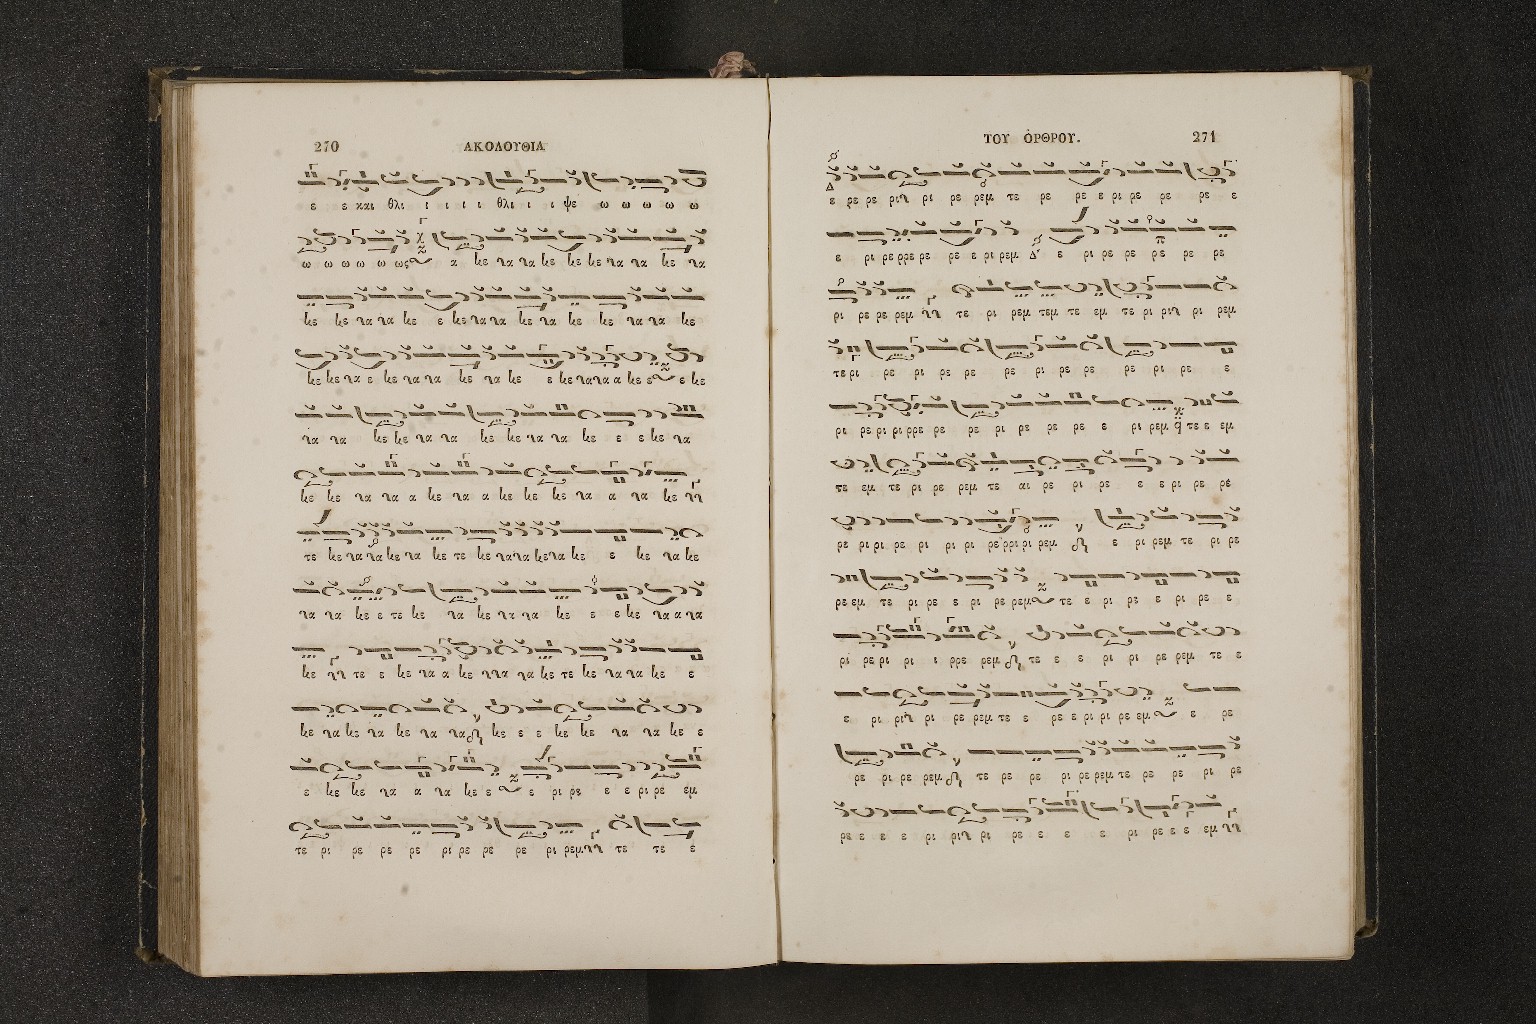 270 ΑΚΟΛΟΥΘΙΑ
ε ε και θλι ι ι ι ι θλι ι ι ψε ω ω ω ω ω
ω ω ω ω ω ως α κε να να κε κε κε να να κε να
κε κε να να κε ε κε να να κε να κε κε να να κε
κε κε να ε κε να να κε να κε ε κε να να α κε ε ε κε
να να κε κε να να κε κε να να κε ε ε κε να
κε κε να να α κε να α κε κε κε να α να κε
τε κε να να κε να κε τε κε να να κε να κε ε κε να κε
να να κε ε τε κε να κε να να κε ε ε κε να α να
κε τε ε κε να α κε να να κε τε κε να να κε ε
κε να κε να κε να να κε ε ε κε κε να να κε ε
ε κε κε να α να κε ε ε ρι ρε ε ε ρι ρε εμ
τε ρι ρε ρε ρε ρι ρε ρε ρε ρι ρεμ τε τε ε
ΤΟΥ ὈΡΘΡΟΥ. 271
ε ρε ρε ριν ρι ρε ρεμ τε ρε ρε ε ρι ρε ρε ρε ε
ε ρι ρε ρρε ρε ρε ε ρι ρεμ ε ρι ρε ρε ρε ρε ρε
ρι ρε ρε ρεμ τε ρι ρεμ τεμ τε εμ τε ρι ριν ρι ρεμ
τε ρι ρε ρι ρε ρε ρε ρι ρε ρε ρε ρι ρε ε
ρι ρε ρι ρι ρρε ρε ρε ρι ρε ρε ρε ε ρι ρεμ τε ε εμ
τε εμ τε ρι ρε ρεμ τε αι ρε ρι ρε ε ε ρι ρε ρε
ρε ρι ρι ρε ρι ρι ρι ρε ρρι ρι ρεμ ε ρι ρεμ τε ρι ρε
ρε εμ τε ρι ρε ε ρι ρε ρεμ τε ε ρι ρε ε ρι ρε ε
ρι ρε ρι ρι ι ρρε ρεμ τε ε ε ρι ρι ρε ρεμ τε ε
ε ρι ριν ρι ρε ρεμ τε ε ρε ε ρι ρι ρε εμ ε ρε
ρε ρι ρε ρεμ τε ρε ρε ρι ρε ρεμ τε ρε ρε ρι ρε
ρε ε ε ε ρι ριν ρι ρε ε ε ε ρι ρε ε ε εμ